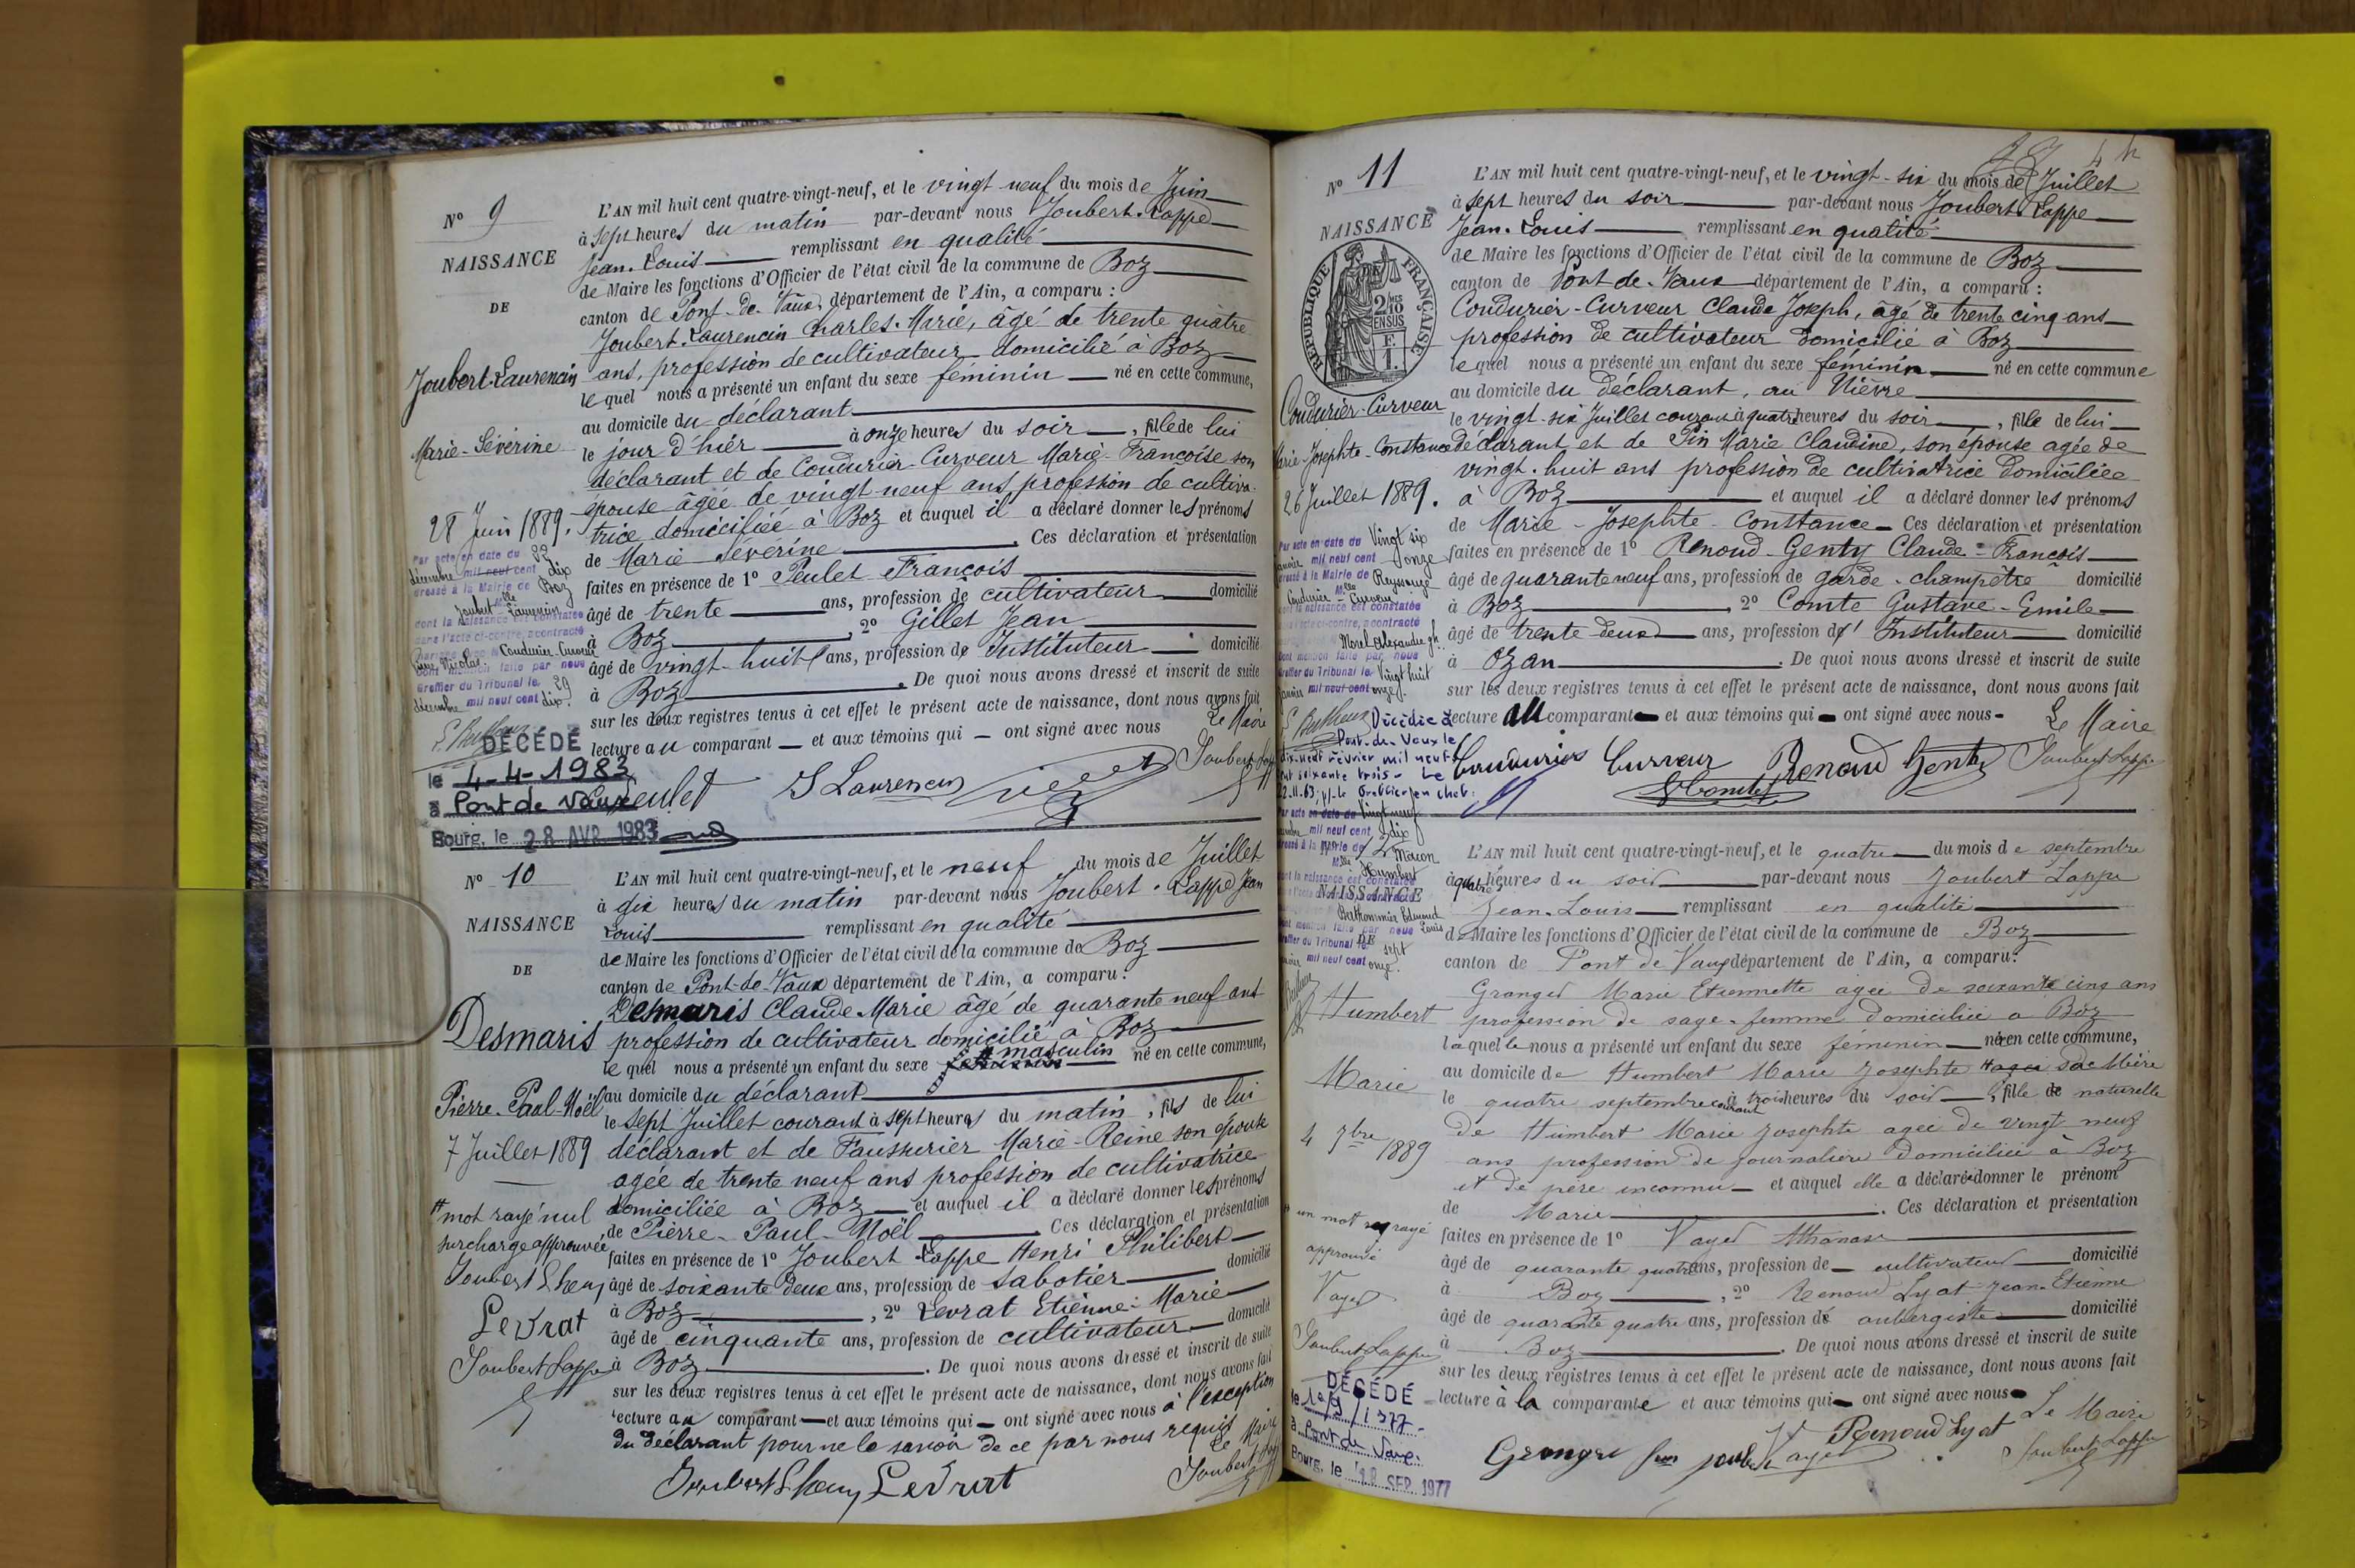 N° 9
NAISSANCE
DE
Joubert-Laurencin
Marie-Sévérine
28 Juin 1889.
Par acte en date du 29
décembre mil neuf cent dix
dressé à la Mairie de Boz
Melle
Joubert-Laurencin
dont la naissance est constatée
dans l'acte ci-contre, a contracté
mariage avec M Coudurier-Curveur
Nicolas.
Dont mention faite par nous
Greffier du Tribunal le 29
décembre mil neuf cent dix.
DÉCÉDÉ
le 4-4-1983
à Pont de Vaux
Bourg, le 28 AVR. 1983
L'AN mil huit cent quatre-vingt-neuf, et le vingt-neuf du mois de Juin
à sept heures du matin par-devant nous Joubert-Lappe
Jean-Louis remplissant en qualité
de Maire les fonctions d'Officier de l'état civil de la commune de Boz
canton de Pont-de-Vaux, département de l'Ain, a comparu :
Joubert-Laurencin Charles-Marie, âgé de trente quatre
ans, profession de cultivateur domicilié à Boz
lequel nous a présenté un enfant du sexe féminin né en cette commune,
au domicile du déclarant
le jour d'hier à onze heures du soir, fille de lui
déclarant et de Coudurier-Curveur Marie-Françoise son
épouse âgée de vingt-neuf ans profession de cultiva-
trice domiciliée à Boz et auquel il a déclaré donner les prénoms
de Marie-Sévérine. Ces déclaration et présentation
faites en présence de 1° Peulet François
âgé de trente ans, profession de cultivateur domicilié
à Boz, 2° Gillet Jean
âgé de vingt-huit ans, profession de Instituteur domicilié
à Boz. De quoi nous avons dressé et inscrit de suite
sur les deux registres tenus à cet effet le présent acte de naissance, dont nous avons fait
lecture au comparant et aux témoins qui ont signé avec nous Le Maire
Peulet J Laurencin Joubert Lappe
N° 10
NAISSANCE
DE
Desmaris
Pierre-Paul-Noël
7 Juillet 1889
# mot rayé nul
surcharge approuvée
Joubert L heny
Levrat
Joubert Lappe
L'AN mil huit cent quatre-vingt-neuf, et le neuf du mois de Juillet
à dix heures du matin par-devant nous Joubert-Lappe Jean
Louis remplissant en qualité
de Maire les fonctions d'Officier de l'état civil de la commune de Boz
canton de Pont-de-Vaux département de l'Ain, a comparu :
Desmaris Claude-Marie âgé de quarante neuf ans
profession de cultivateur domicilié à Boz
lequel nous a présenté un enfant du sexe # masculin né en cette commune,
au domicile du déclarant
le sept Juillet courant à sept heures du matin, fils de lui
déclarant et de Faussurier Marie-Reine son épouse
agée de trente neuf ans profession de cultivatrice
domiciliée à Boz et auquel il a déclaré donner les prénoms
de Pierre-Paul-Noël Ces déclaration et présentation
faites en présence de 1° Joubert-Lappe Henri Philibert
âgé de soixante deux ans, profession de sabotier domicilié
à Boz, 2° Levrat Etienne-Marie
âgé de cinquante ans, profession de cultivateur domicilié
à Boz. De quoi nous avons dressé et inscrit de suite
sur les deux registres tenus à cet effet le présent acte de naissance, dont nous avons fait
lecture au comparant et aux témoins qui ont signé avec nous à l'exception
du déclarant pour ne le savoir de ce par nous requis Le Maire
Joubert L heny Levrat Joubert Lappe
N° 11
NAISSANCE
RÉPUBLIQUE FRANÇAISE
2/10 EN SUS
Coudurier-Curveur
Marie-Josephte-Constance
26 Juillet 1889.
Par acte en date du Vingt six
janvier mil neuf cent onze
dressé à la Mairie de Reyssouze
Melle
Coudurier-Curveur
dont la naissance est constatée
dans l'acte ci-contre, a contracté
Morel Alexandre
Dont mention faite par nous
Greffier du Tribunal le Vingt huit
janvier mil neuf cent onze.
Décédée à
Pont-de-Vaux le
dix-neuf février mil neuf
cent soixante trois - Le
22-11-63, p/ le Greffier en chef:
L'AN mil huit cent quatre-vingt-neuf, et le vingt-six du mois de Juillet
à sept heures du soir par-devant nous Joubert-Lappe
Jean-Louis remplissant en qualité
de Maire les fonctions d'Officier de l'état civil de la commune de Boz
canton de Pont-de-Vaux département de l'Ain, a comparu :
Coudurier-Curveur Claude Joseph, âgé de trente cinq ans
profession de cultivateur domicilié à Boz
lequel nous a présenté un enfant du sexe féminin né en cette commune
au domicile du déclarant, au Nièvre
le vingt-six Juillet courant à quatre heures du soir, fille de lui
déclarant et de Pin Marie Claudine, son épouse agée de
vingt-huit ans profession de cultivatrice domiciliée
à Boz et auquel il a déclaré donner les prénoms
de Marie-Josephte-Constance Ces déclaration et présentation
faites en présence de 1° Renoud-Genty Claude-François
âgé de quarante neuf ans, profession de garde-champêtre domicilié
à Boz, 2° Comte Gustave-Emile
âgé de trente deux ans, profession d' Instituteur domicilié
à Ozan. De quoi nous avons dressé et inscrit de suite
sur les deux registres tenus à cet effet le présent acte de naissance, dont nous avons fait
lecture au comparant et aux témoins qui ont signé avec nous Le Maire
Coudurier Curveur Renoud Genty Joubert Lappe
G Comte
Par acte en date du Vingt neuf
décembre mil neuf cent dix
dressé à la Mairie de Macon
Melle Humbert
dont la naissance est constatée
NAISSANCE
Berthommier Edmond
Louis
Dont mention faite par nous
DE
Greffier du Tribunal le sept
janvier mil neuf cent onze.
Humbert
Marie
4 7bre 1889
# un mot rayé
approuvé
Vayer
Joubert Lappe
DÉCÉDÉ
le 10/9/1977
à Pont de Vaux
Bourg, le 12 SEP. 1977
L'AN mil huit cent quatre-vingt-neuf, et le quatre du mois de septembre
à quatre heures du soir par-devant nous Joubert Lappe
Jean-Louis remplissant en qualité
de Maire les fonctions d'Officier de l'état civil de la commune de Boz
canton de Pont de Vaux département de l'Ain, a comparu :
Granger Marie Etiennette agée de soixante cinq ans
profession de sage-femme domiciliée à Boz
laquelle nous a présenté un enfant du sexe féminin née en cette commune,
au domicile de Humbert Marie Josephte # sa Mère
le quatre septembre courant à trois heures du soir, fille naturelle
de Humbert Marie Josephte agée de vingt neuf
ans profession de journalière domiciliée à Boz
et de père inconnu et auquel elle a déclaré donner le prénom
de Marie. Ces déclaration et présentation
faites en présence de 1° Vayer Athanase
âgé de quarante quatre ans, profession de cultivateur domicilié
à Boz, 2° Renoud Lyat Jean-Etienne
âgé de quarante quatre ans, profession de aubergiste domicilié
à Boz. De quoi nous avons dressé et inscrit de suite
sur les deux registres tenus à cet effet le présent acte de naissance, dont nous avons fait
lecture à la comparante et aux témoins qui ont signé avec nous Le Maire
Vayer Renoud Lyat Joubert Lappe